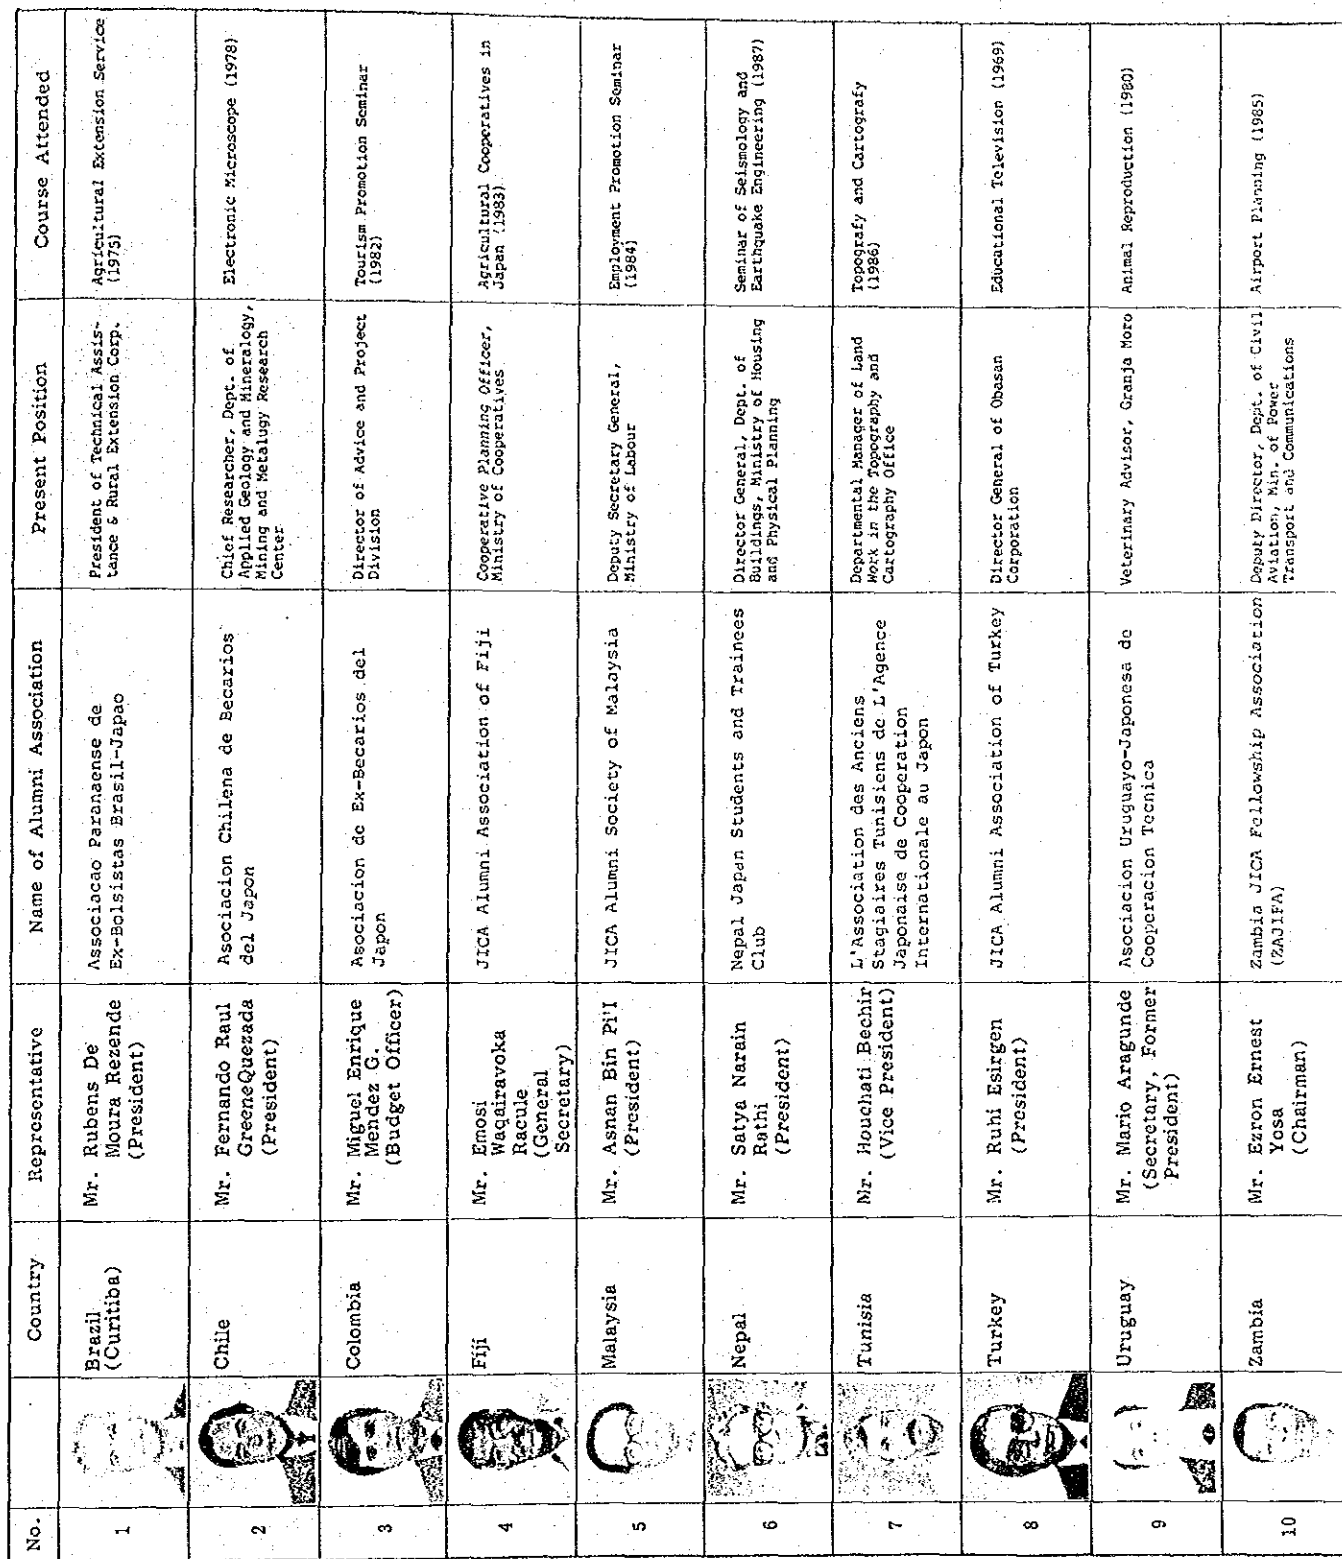 No.
Country
Representative
Name of Alumni Association
Present Position
Course Attended
1
Brazil
(Curitiba)
Mr. Rubens De
Moura Rezende
(President)
Associacao Paranaense de
Ex-Bolsistas Brasil-Japao
President of Technical Assis-
tance & Rural Extension Corp.
Agricultural Extension Service
(1975)
2
Chile
Mr. Fernando Raul
GreeneQuezada
(President)
Asociacion Chilena de Becarios
del Japon
Chief Researcher, Dept. of
Applied Geology and Mineralogy,
Mining and Metalugy Research
Center
Electronic Microscope (1978)
3
Colombia
Mr. Miguel Enrique
Mendez G.
(Budget Officer)
Asociacion de Ex-Becarios del
Japon
Director of Advice and Project
Division
Tourism Promotion Seminar
(1982)
4
Fiji
Mr. Emosi
Waqairavoka
Racule
(General
Secretary)
JICA Alumni Association of Fiji
Cooperative Planning Officer,
Ministry of Cooperatives
Agricultural Cooperatives in
Japan (1983)
5
Malaysia
Mr. Asnan Bin Pi'I
(President)
JICA Alumni Society of Malaysia
Deputy Secretary General,
Ministry of Labour
Employment Promotion Seminar
(1984)
6
Nepal
Mr. Satya Narain
Rathi
(President)
Nepal Japan Students and Trainees
Club
Director General, Dept. of
Buildings, Ministry of Housing
and Physical Planning
Seminar of Seismology and
Earthquake Engineering (1987)
7
Tunisia
Mr. Houchati Bechir
(Vice President)
L'Association des Anciens
Stagiaires Tunisiens de L'Agence
Japonaise de Cooperation
Internationale au Japon
Departmental Manager of Land
Work in the Topography and
Cartography Office
Topografy and Cartografy
(1986)
8
Turkey
Mr. Ruhi Esirgen
(President)
JICA Alumni Association of Turkey
Director General of Obasan
Corporation
Educational Television (1969)
9
Uruguay
Mr. Mario Aragunde
(Secretary, Former
President)
Asociacion Uruguayo-Japonesa de
Cooperacion Tecnica
Veterinary Advisor, Granja Moro
Animal Reproduction (1980)
10
Zambia
Mr. Ezron Ernest
Yosa
(Chairman)
Zambia JICA Fellowship Association
(ZAJIFA)
Deputy Director, Dept. of Civil
Aviation, Min. of Power
Transport and Communications
Airport Planning (1985)